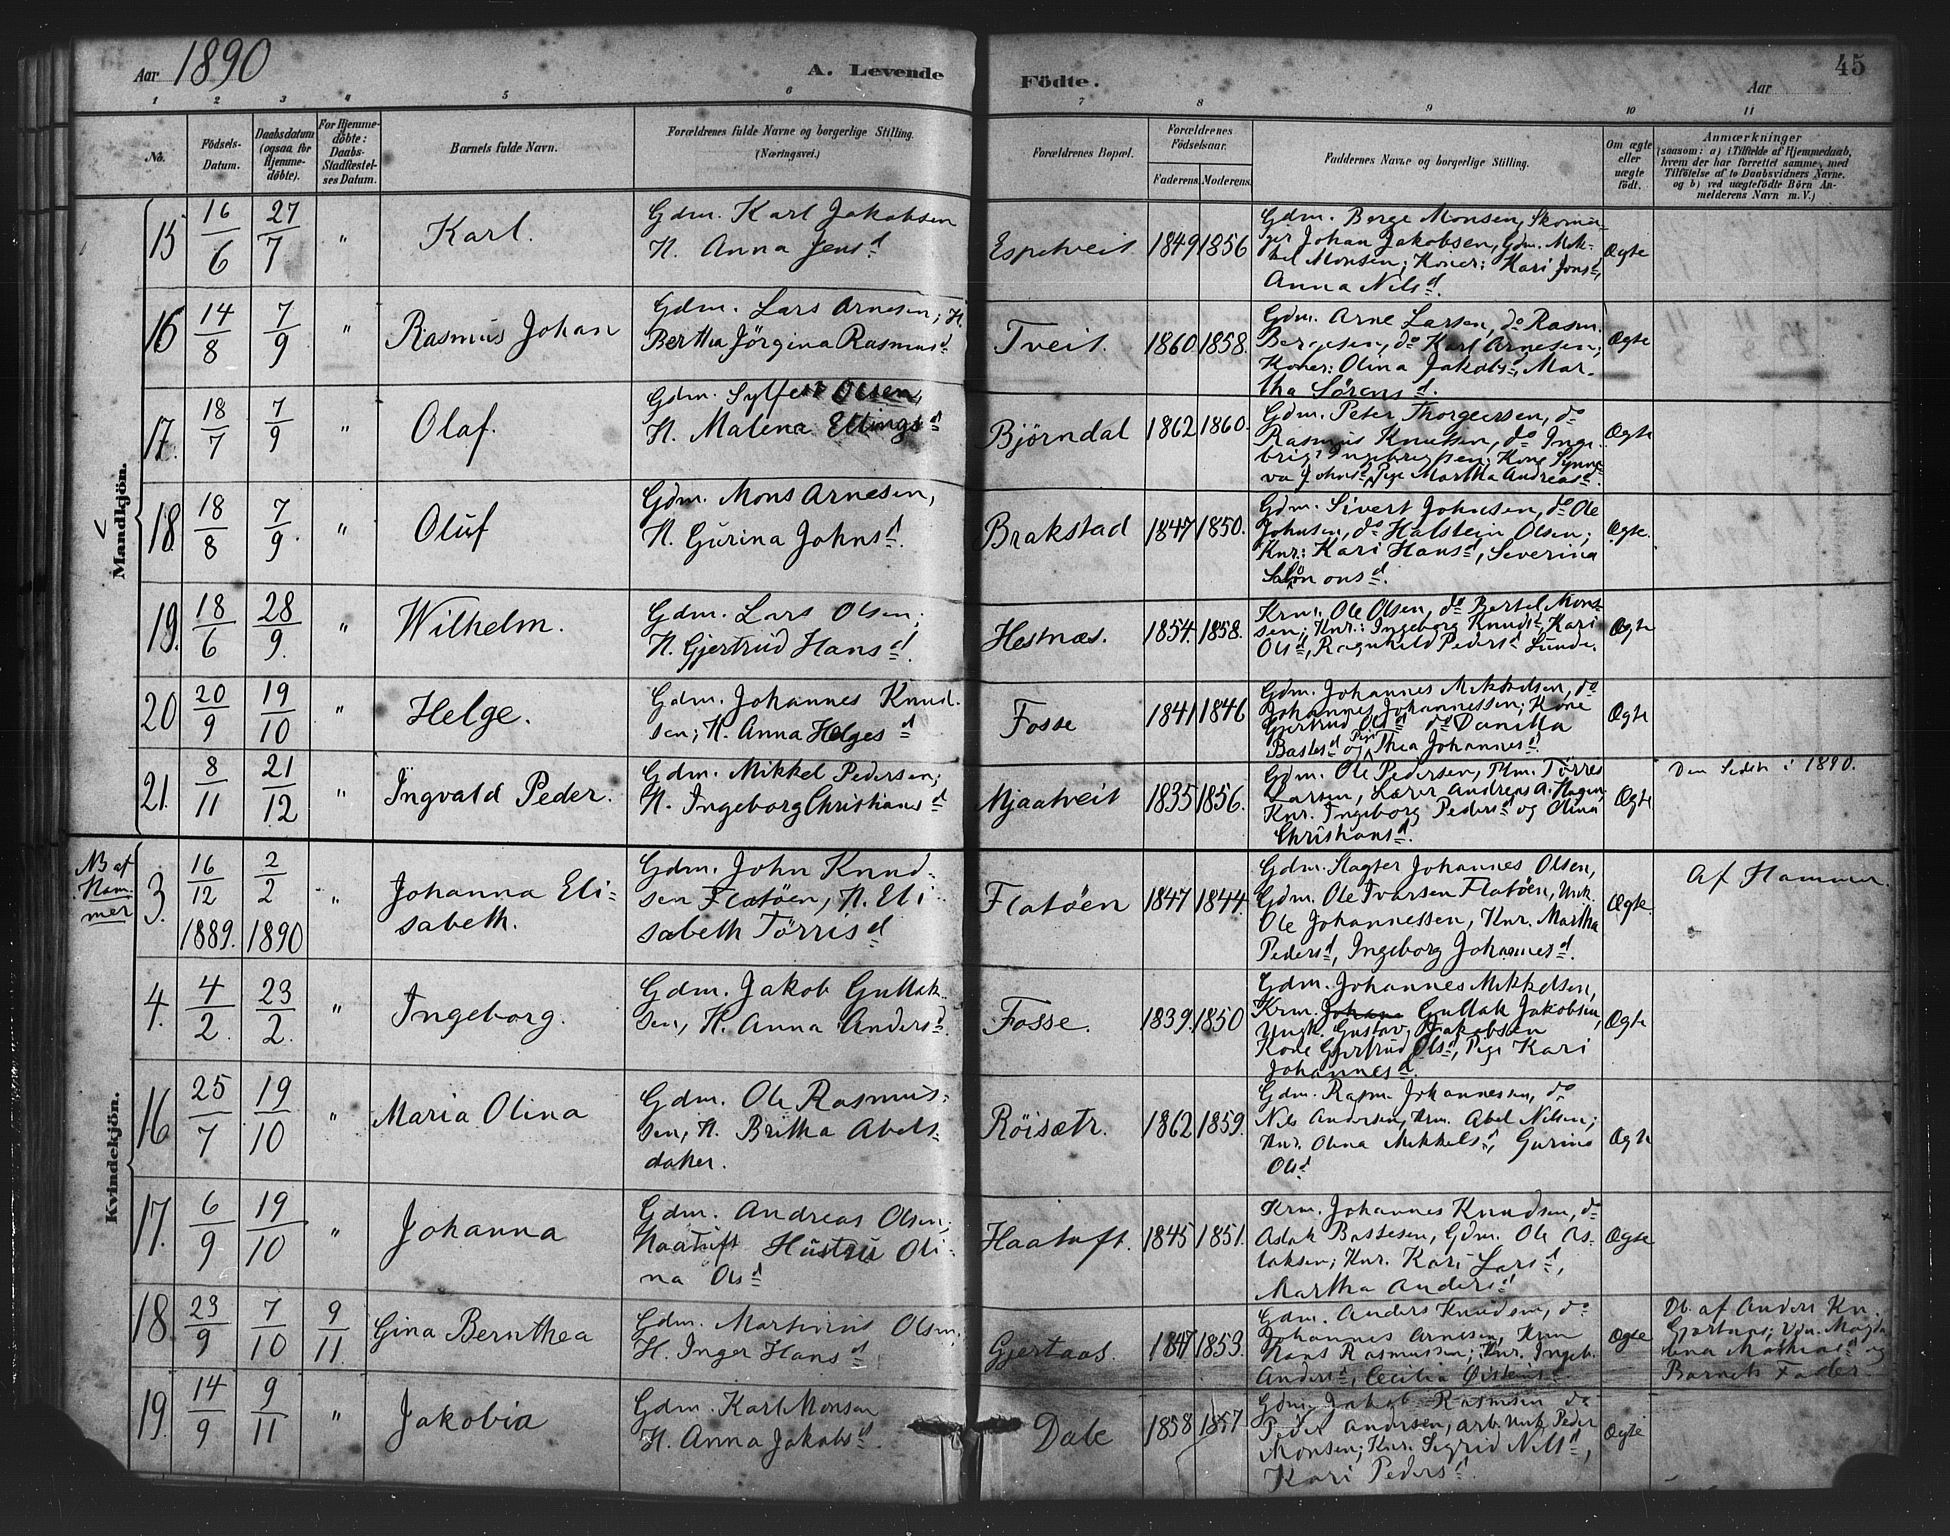 Aar 1890
A. Levende
Födte.
Aar
45
1 2 3 4 5 6 7 8 9 10 11
No.
Födsels-Datum.
Daabsdatum (ogsaa for Hjemme-døbte).
For Hjemme-døbte: Daabs-Stadfæstel-ses Datum.
Barnets fulde Navn.
Forældrenes fulde Navne og borgerlige Stilling.
(Næringsvei.)
Forældrenes Bopæl.
Forældrenes Födselsaar.
Faderens. Moderens.
Faddernes Navne og borgerlige Stilling.
Om ægte eller uægte födt.
Anmærkninger
(saasom: a) i Tilfælde af Hjemmedaab, hvem der har forrettet samme, med Tilföielse af to Daabsvidners Navne. og b) ved uægtefödte Börn An-melderens Navn m. V.)
Mandkjön.
15 16/6 27/7 " Karl.
Gdm. Karl Jakobsen
H. Anna Jensd.
Espetveit 1849 1856
Gdm. Berge Monsen, Skoma-
ger Johan Jakobsen, Gdm. Mik-
kel Monsen; Koner: Kari Jonsd,
Anna Nilsd.
Ægte
16 14/8 7/9 " Rasmus Johan
Gdm. Lars Arnesen; H.
Bertha Jörgina Rasmusd
Tveit. 1860 1858.
Gdm. Arne Larsen, do Rasm.
Bergesen, do Karl Arnesen;
Koner: Olina Jakobsd, Mar-
tha Sörensd.
Ægte
17. 18/7 7/9 " Olaf.
Gdm. Sylfest Olsen,
H. Malena Ellingsd
Björndal 1862 1860.
Gdm. Peter Thorgersen, do
Rasmus Knutsen, do Inge-
brigt Ingebrigtsen; Kone Synne-
va Johnsd, Pige Martha Andreasd.
Ægte
18. 18/8 7/9 " Oluf
Gdm. Mons Arnesen,
H. Gurina Johnsd.
Brakstad 1847 1850.
Gdm. Sivert Johnsen, do Ole
Johnsen, do Halstein Olsen;
Knr: Kari Hansd, Severina
Salomonsd.
Ægte.
19. 18/6 28/9. " Wilhelm.
Gdm. Lars Olsen;
H. Gjertrud Hansd.
Hestnæs. 1854. 1858.
Krm. Ole Olsen, do Bertel Mons-
sen; Knr.: Ingeborg Knudsd, Kari
Olsd, Ragnhild Pedersd Lunde.
Ægte
20 20/9 19/10 " Helge.
Gdm. Johannes Knud-
sen; H. Anna Helgesd
Fosse 1841 1846
Gdm. Johannes Mikkelsen, do
Johannes Johannessen; Kone
Gjertrud Olsd do Danilla
Bastesd og Pige Thea Johannesd.
Ægte
21. 8/11 21/12 " Ingvald Peder.
Gdm. Mikkel Pedersen;
H. Ingeborg Christiansd
Mjaatveit 1835 1856.
Gdm. Ole Pedersen, Tørres
Larsen, Lærer Andreas A. Hagen,
Knr. Ingeborg Pedersd og Olina
Christiansd.
Ægte
Den Sidste i 1890.
NB af
Ham-
mer
Kvindekjön.
3. 16/12 1889. 2/2 1890 " Johanna Eli-
sabeth.
Gdm. John Knud-
sen Flatöen, H. Eli-
sabeth Törrisd
Flatöen 1847 1844.
Gdm. Slagter Johannes Olsen,
Gdm. Ole Ivarsen Flatöen, Unk.
Ole Johannessen, Knr. Martha
Pedersd, Ingeborg Johannesd.
Ægte.
Af Hammer.
4. 4/2 23/2. " Ingeborg.
Gdm. Jakob Gullak-
sen, H. Anna Andersd
Fosse. 1839. 1850
Gdm. Johannes Mikkelsen,
Krm. Gullak Jakobsen,
Ungk. Gustav Jakobsen
Kone Gjertrud Olsd, Pige Kari
Johannesd.
Ægte
16 25/7 19/10 " Maria Olina
Gdm. Ole Rasmus-
sen, H. Britha Abels-
datter.
Röisætr. 1862 1859.
Gdm. Rasm. Johannessen, do
Nils Andersen, Krm. Abel Nilsen;
Knr. Olina Mikkelsd, Gurine
Olsd
Ægte
17. 6/9 19/10 " Johanna
Gdm. Andreas Olsen
Haatuft Hustru Oli-
na Olsd
Haatuft. 1845 1851.
Krm. Johannes Knudsen, do
Aslak Bastesen, Gdm. Ole As-
laksen; Knr. Kari Larsd,
Martha Andersd
Ægte
18. 23/9 7/10 9/11. Gina Bernthea
Gdm. Martinus Olsen,
H. Inger Hansd
Gjertaas. 1847 1853.
Gdm. Anders Knudsen, do
Johannes Arnesen, Krm
Hans Rasmussen; Knr. Ingeb.
Andersd, Cecilia Øistensd
Ægte
Db. af Anders Kn.
Gjertaas; Vdn. Magda
lena Mathiasd og
Barnets Fader.
19. 14/9 9/11 " Jakobia
Gdm. Karl Monsen
H. Anna Jakobsd.
Dale 1858 1857
Gdm. Jakob Rasmusen do
Peder Andersen, arb. Unk. Peder
Monsen; Knr. Sigrid Nilsd,
Kari Pedersd.
Ægte